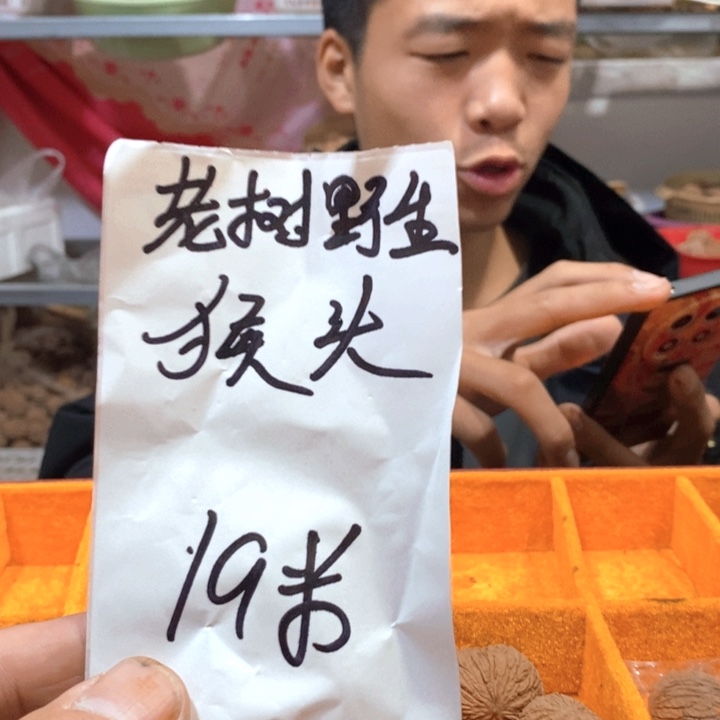 老树野生
猴头
19米